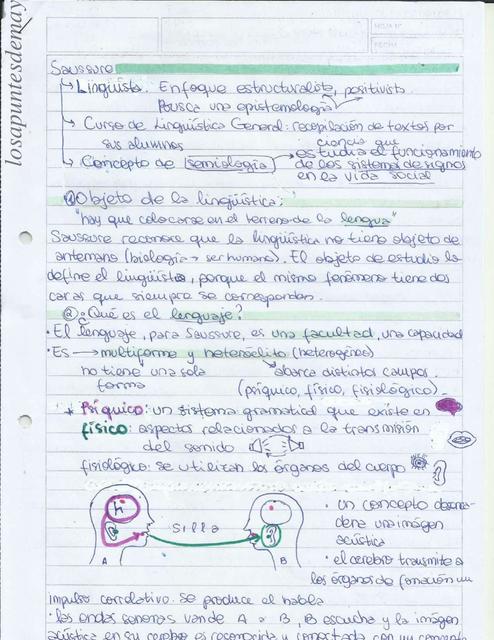 losapuntesdemay
HOJA Nº
FECHA
Saussure
→ Lingüista. Enfoque estructuralista, positivista
Busca una epistemología
→ Curso de Lingüística General: recopilación de textos por
sus alumnos
→ Concepto de semiología → ciencia que
estudia el funcionamiento
de los sistemas de signos
en la vida social
① Objeto de la lingüística:
"hay que colocarse en el terreno de la lengua"
Saussure reconoce que la lingüística no tiene objeto de
antemano (biología → ser humano). El objeto de estudio lo
define el lingüista, porque el mismo fenómeno tiene dos
caras que siempre se corresponden.
② ¿Qué es el lenguaje?
• El lenguaje, para Saussure, es una facultad, una capacidad
• Es → multiforme y heteróclito (heterogéneo)
no tiene una sola
forma
abarca distintos campos.
(psíquico, físico, fisiológico).
* Psíquico: un sistema gramatical que existe en
físico: aspectos relacionados a la transmisión
del sonido
fisiológico: se utilizan los órganos del cuerpo
silla
A
B
• un concepto desenca-
dena una imágen
acústica
• el cerebro transmite a
los órganos de fonación un
impulso correlativo. Se produce el habla
• las ondas sonoras van de A a B, B escucha y la imágen
acústica en su cerebro es reconocida y